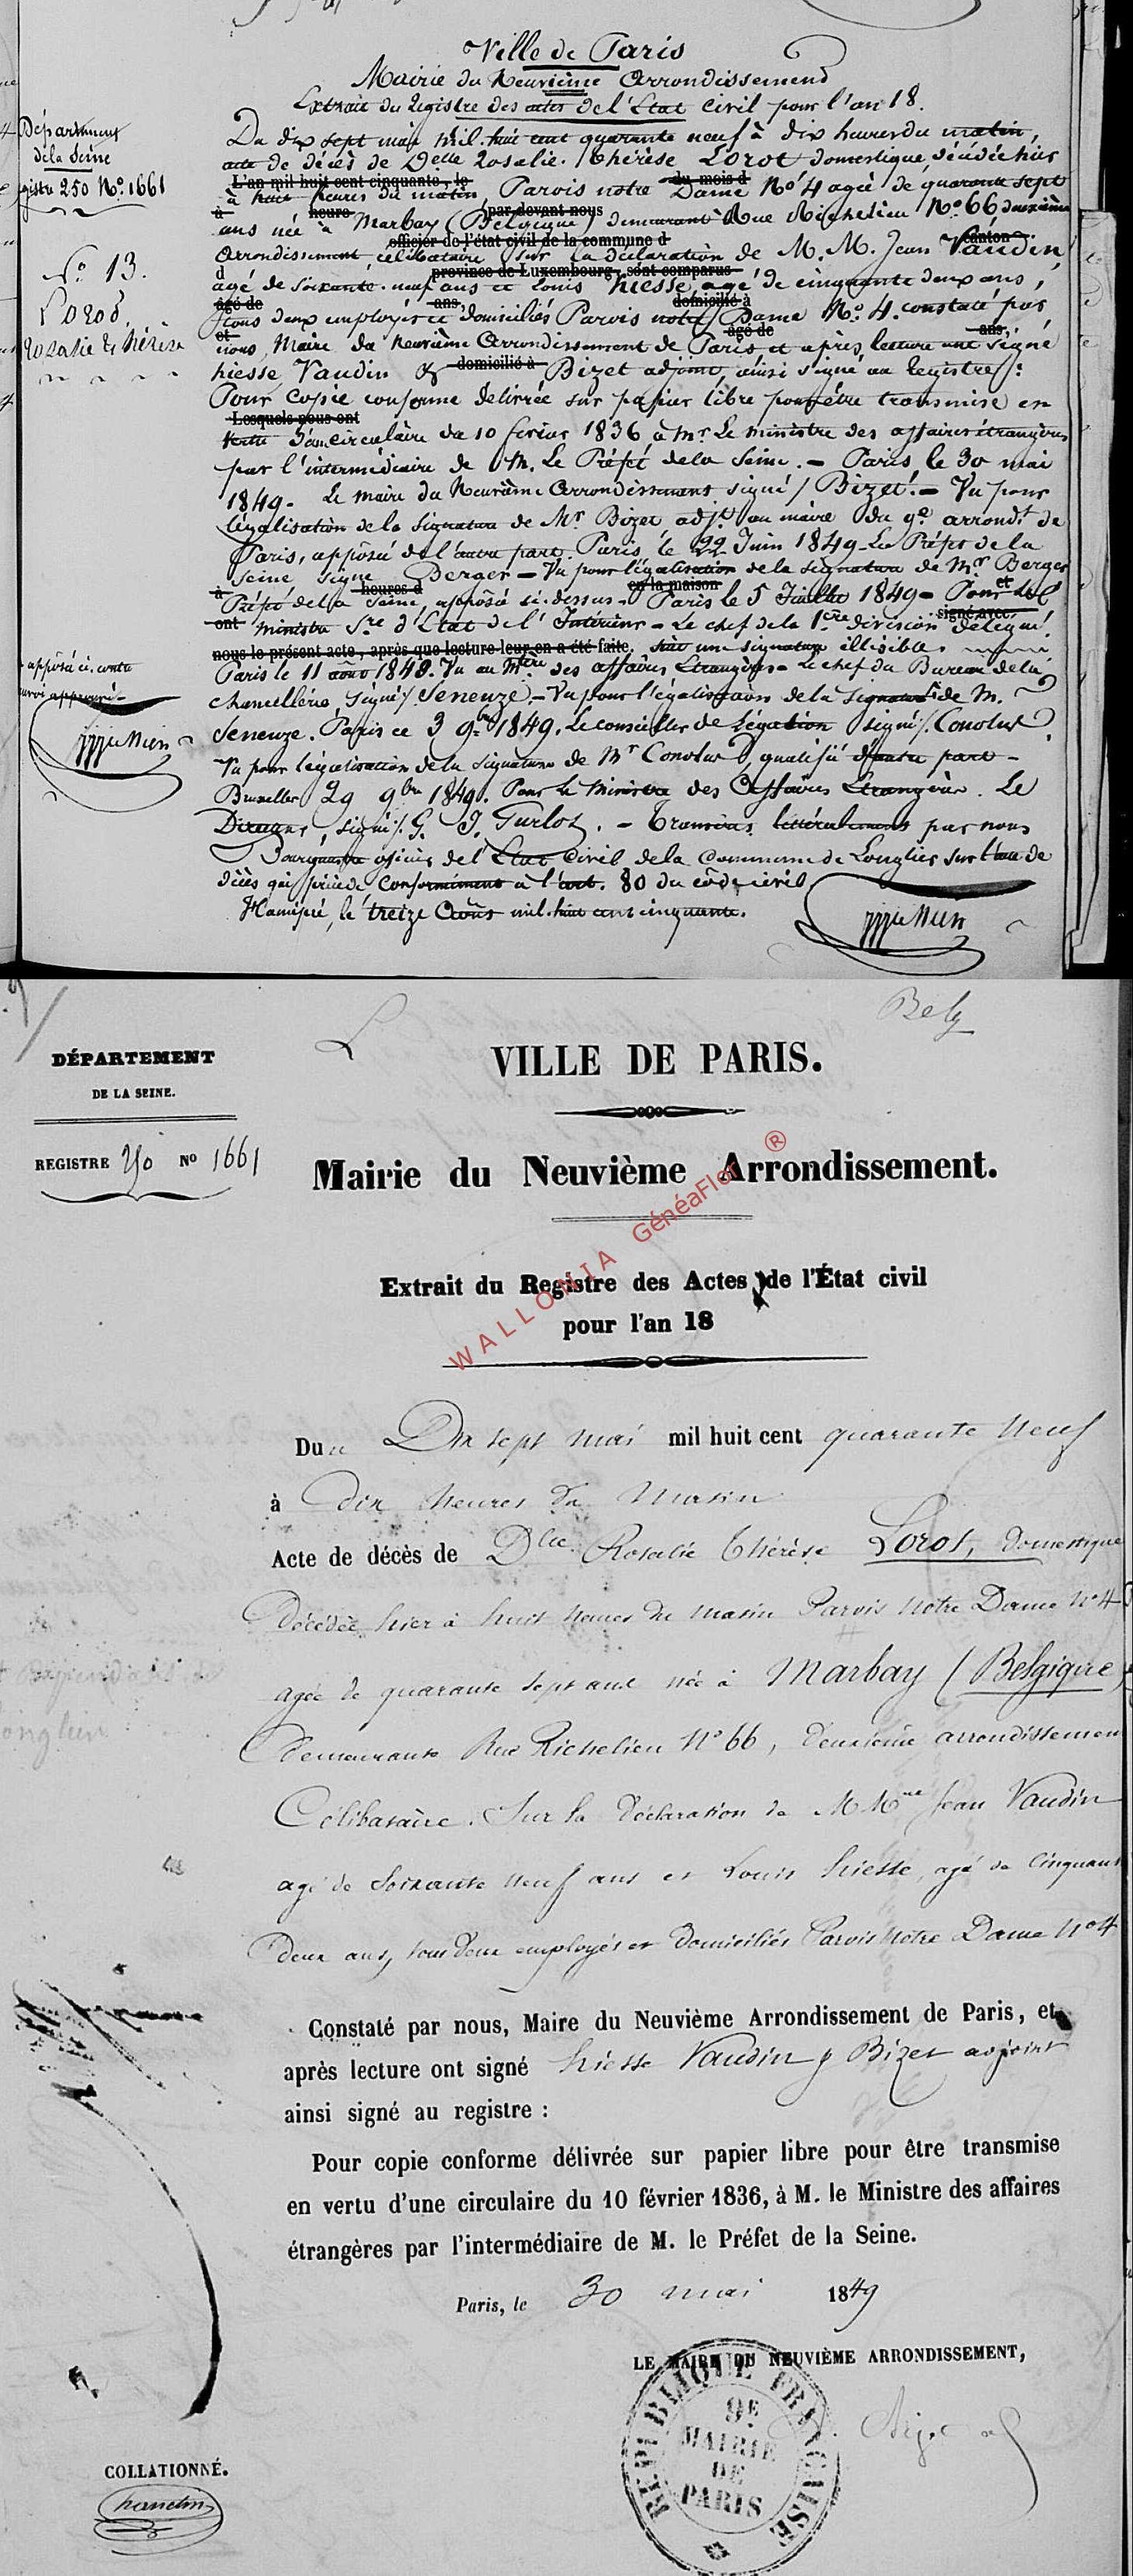 Ville de Paris
Mairie du Neuvième Arrondissement
Extrait du Registre des actes de l'Etat civil pour l'an 18.
Département
de la Seine
Registre 250 No. 1661
No. 13.
Lorot,
Rosalie Thérèse
Du dix sept mai mil huit cent quarante neuf à dix heures du matin,
acte de décès de Delle Rosalie Thérèse Lorot domestique, décédée hier
L'an mil huit cent cinquante, le du mois d
à huit heures du matin Parvis notre Dame No 4 agée de quarante sept
à heure par devant nous
ans née à Marbay (Belgique) demeurant Rue Richelieu No. 66 deuxième
officier de l'état civil de la commune d canton
Arrondissement, célibataire sur la déclaration de M. M. Jean Vaudin
d province de Luxembourg, sont comparus
agé de soixante neuf ans et Louis hiesse, agé de cinquante deux ans,
âgé de ans domicilié à
tous deux employés et domiciliés Parvis notre Dame No. 4. constaté par
et âgé de ans
nous, Maire du Neuvième Arrondissement de Paris et après lecture ont signé
domicilié à
hiesse, Vaudin & Bizet adjoint, ainsi signé au registre :
Pour copie conforme délivrée sur papier libre pour être transmise en
Lesquels nous ont
vertu d'une circulaire du 10 février 1836 à Mr Le ministre des affaires étrangères
par l'intermédiaire de M. Le Préfet de la Seine. — Paris, le 30 mai
1849. Le maire du Neuvième Arrondissement signé / Bizet. — Vu pour
légalisation de la signature de Mr Bizet adjt au maire du 9e arrondt de
Paris, apposée de l'autre part. Paris, le 22 Juin 1849. Le Préfet de la
Seine signé Berger — Vu pour légalisation de la signature de Mr Berger
à heures d en la maison et
Préfet de la Seine, apposée ci-dessus — Paris le 5 Juillet 1849 — Pour le
ont signé avec
ministre Sre d'Etat de l'Intérieur — Le chef de la 1ère division délégué.
nous le présent acte, après que lecture leur en a été faite. suit une signature illisible.
Paris le 11 août 1849. Vu au Mtère des affaires Etrangères — Le chef du Bureau de la
chancellerie, signé /. Seneuze. — Vu pour légalisation de la signature de M.
Seneuze. Paris ce 3 9bre 1849. Le conseiller de Légation signé /.
Vu pour légalisation de la signature de Mr qualifié d'autre part —
Bruxelles 29 9bre 1849. Pour le Ministre des Affaires Etrangères. Le
signé /. G. J. — Transcrit littéralement par nous
Bourgmestre officier de l'Etat Civil de la Commune de Longlier sur l'acte de
décès qui précède conformément à l'art. 80 du code civil
Hamipré, le treize Août mil huit cent cinquante.
apposé ci-contre
approuvé —
Bely
DÉPARTEMENT
DE LA SEINE.
REGISTRE 250 No 1661
VILLE DE PARIS.
Mairie du Neuvième Arrondissement.
WALLONIA GénéaFlor ®
Extrait du Registre des Actes de l'État civil
pour l'an 18
Du Dix sept mai mil huit cent quarante neuf
à dix heures du matin
Acte de décès de Dlle Rosalie Thérèse Lorot, domestique
décédée hier à huit heures du matin Parvis Notre Dame No 4
agée de quarante sept ans née à Marbay (Belgique)
demeurante Rue Richelieu No 66, deuxième arrondissement
Célibataire. Sur la déclaration de M Mrs Jean Vaudin
agé de soixante neuf ans et Louis hiesse, agé de cinquante
deux ans, tous deux employés et domiciliés Parvis Notre Dame No 4
Constaté par nous, Maire du Neuvième Arrondissement de Paris, et
après lecture ont signé hiesse Vaudin & Bizet adjoint
ainsi signé au registre :
Pour copie conforme délivrée sur papier libre pour être transmise
en vertu d'une circulaire du 10 février 1836, à M. le Ministre des affaires
étrangères par l'intermédiaire de M. le Préfet de la Seine.
Paris, le 30 mai 1849
LE MAIRE DU NEUVIÈME ARRONDISSEMENT,
RÉPUBLIQUE FRANÇAISE
9E
MAIRIE
DE
PARIS
COLLATIONNÉ.